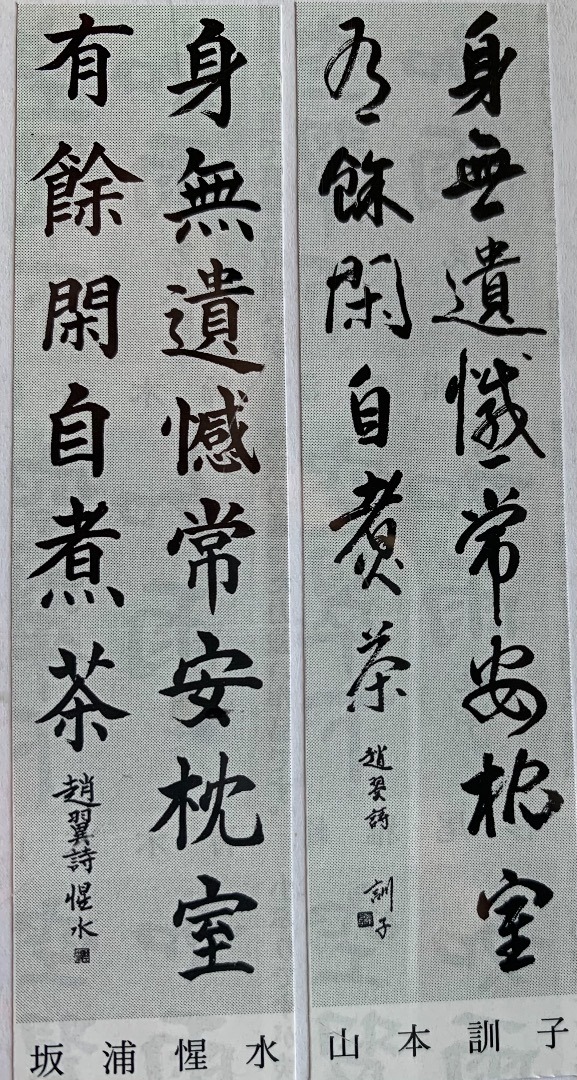 身無遺憾常安枕室
有餘閑自煮茶 趙翼詩 訓子
山本訓子
身無遺憾常安枕室
有餘閑自煮茶 趙翼詩 惺水
坂浦惺水